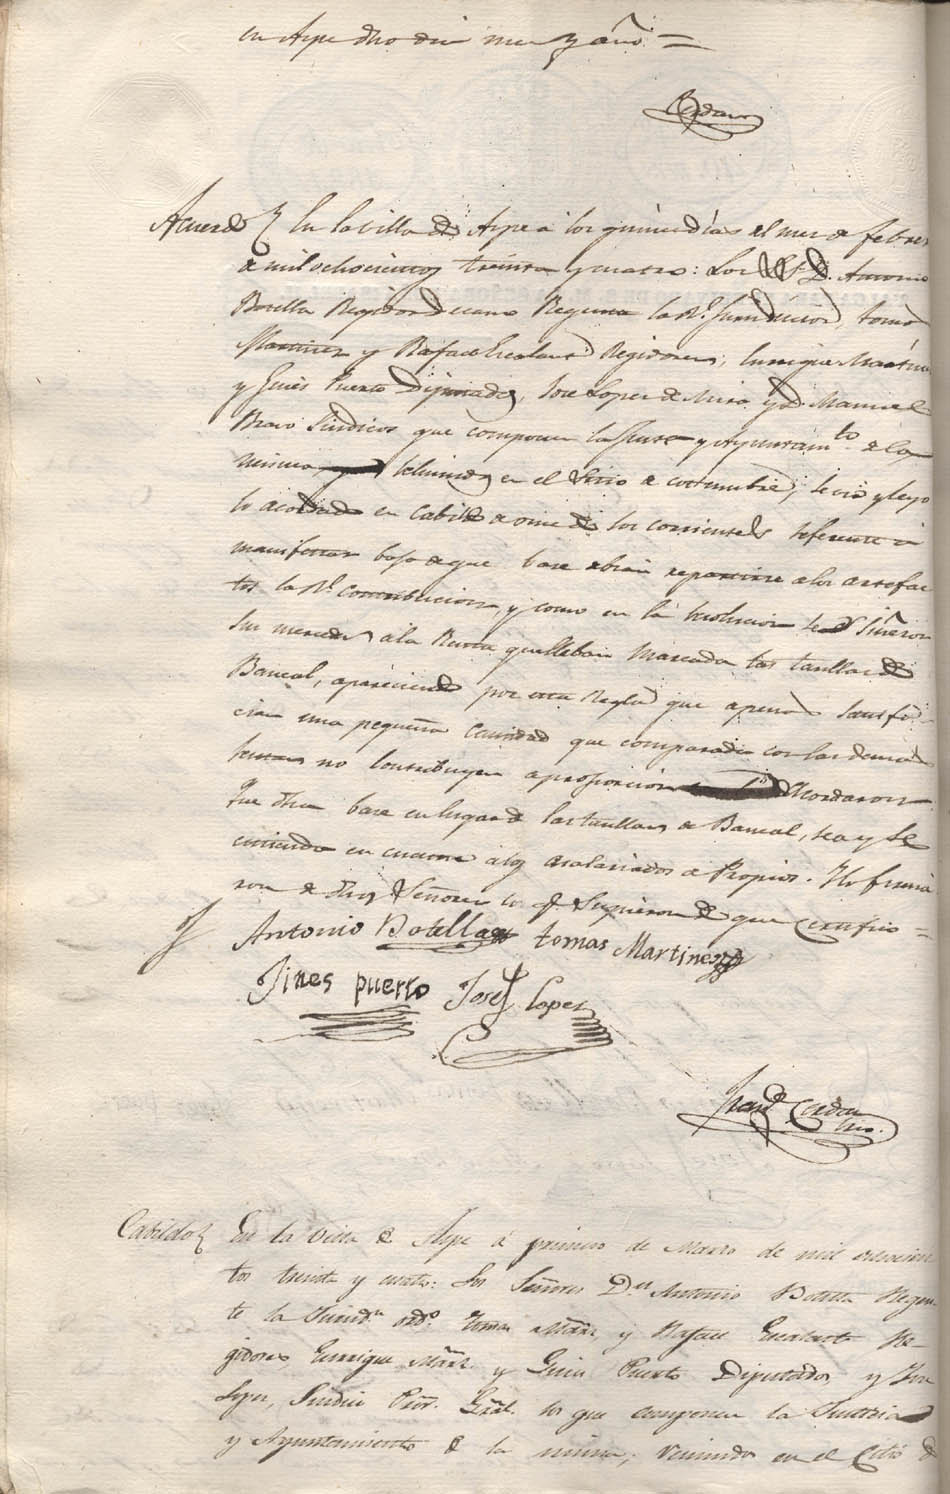 en Aspe dho dia mes y año =
Cerdan
Acuerdo En la Villa de Aspe a los quince dias del mes de febrero
de mil ochocientos treinta y cuatro: Los SS. D. Antonio
Botella Regidor Decano Regente la Rl. Jurisdiccion, tomas
Martinez y Rafael Escolano Regidores, Enrrique Martinez
y Gines Puerto Diputados, Jose Lopez de Mira y D. Manuel
Bravo Sindicos que componen la Junta y Ayuntamto. de la
misma reunidos en el Sitio de costumbre, se vio y leyo
lo acordado en Cabildo de once de los corrientes referente a
manifestar bajo de que base debian repartirse a los artefac
tos la Rl. Contribucion, y como en la resolucion se refirieron
sus mercedes a la Renta que lleban marcada las taullas de
Bancal, apareciendo por esta Regla que apenas satisfa
cian una pequeña Cantidad que comparada con las demas
rentas no Contribuyen a proporcion Acordaron
Que dha base en lugar de las taullas de Bancal, sea y se
entienda en cuanto a los asalariados de Propios. Y lo firma
ron de dhos Señores los q. Supieron de que Certifico =
Antonio Botella tomas Martinez
Jines puerto Josef Lopez
Franco. Cerdan
Srio.
Cabildo En la Villa de Aspe a primero de Marzo de mil ochocien
tos treinta y cuatro: Los Señores Dn. Antonio Botella Regen
te la Jurisdn. ordª. Tomas Mãrz y Rafael Escolano Re-
gidores Enrrique Mãrz. y Gines Puerto Diputados y Jose
Lopez, Sindico Pror. Gral. los que componen la Justicia
y Ayuntamiento de la misma; reunidos en el Citio de